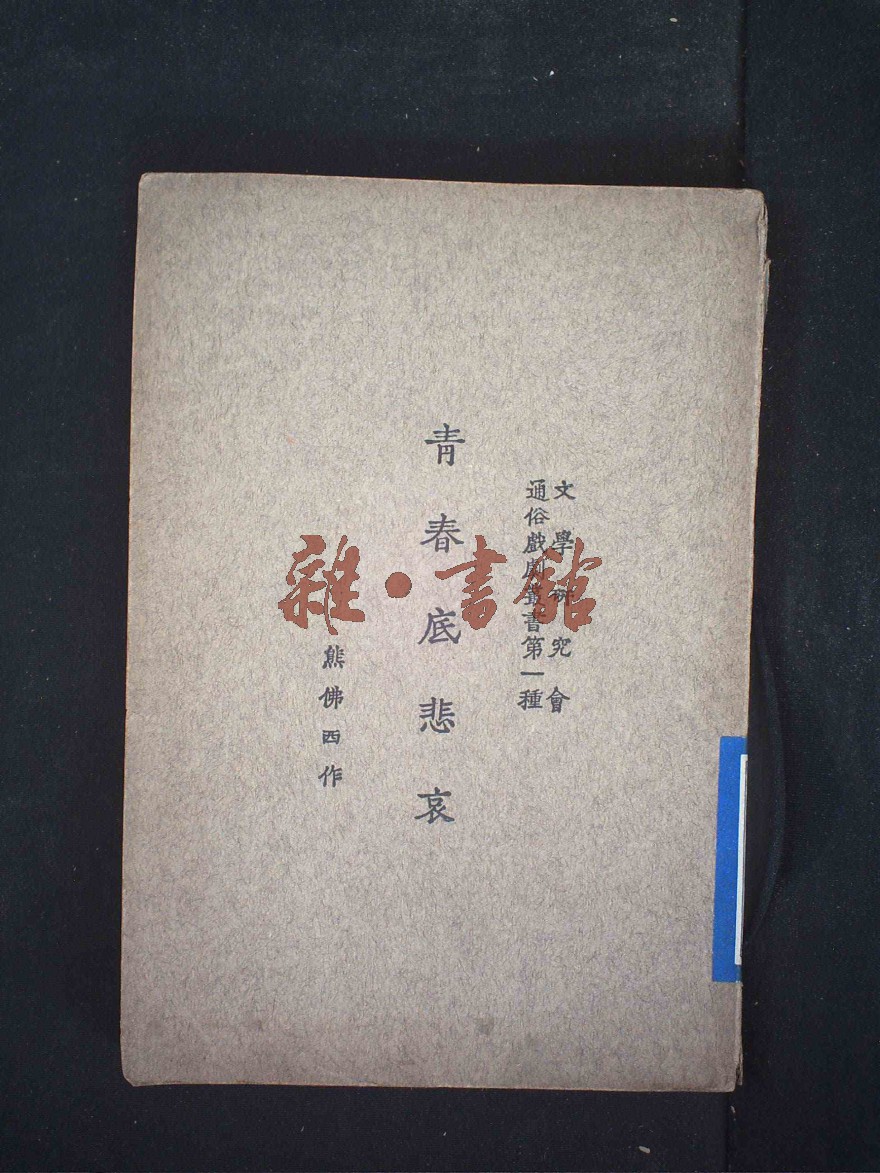 文學研究會
通俗戲劇叢書第一種
青春底悲哀
熊佛西作
雜·書館